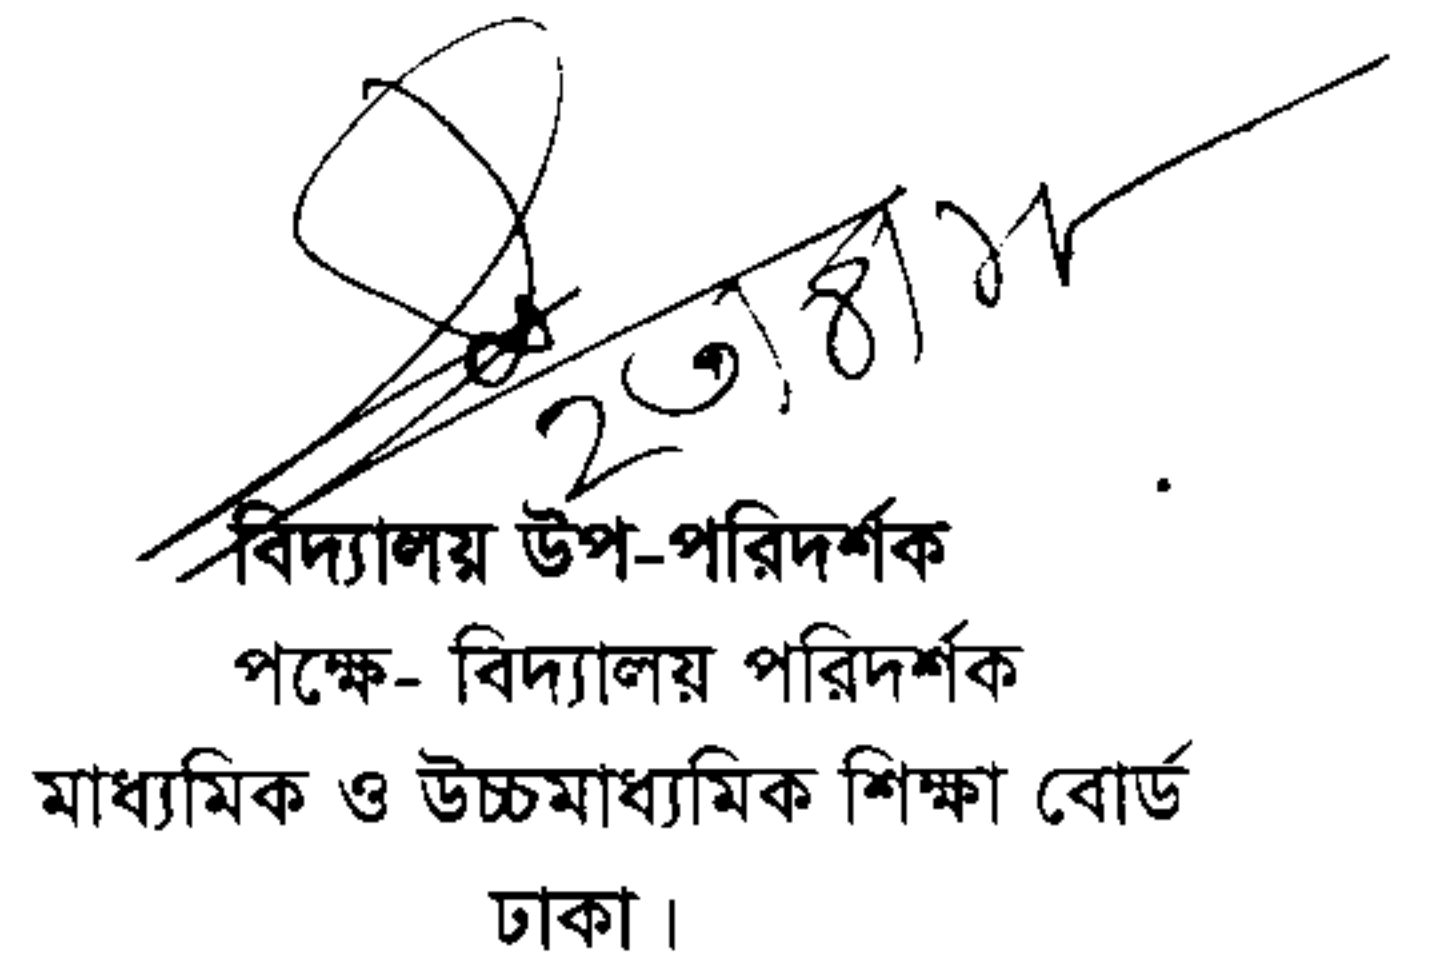 ২৩/৪/১৮
বিদ্যালয় উপ-পরিদর্শক
পক্ষে- বিদ্যালয় পরিদর্শক
মাধ্যমিক ও উচ্চমাধ্যমিক শিক্ষা বোর্ড
ঢাকা।